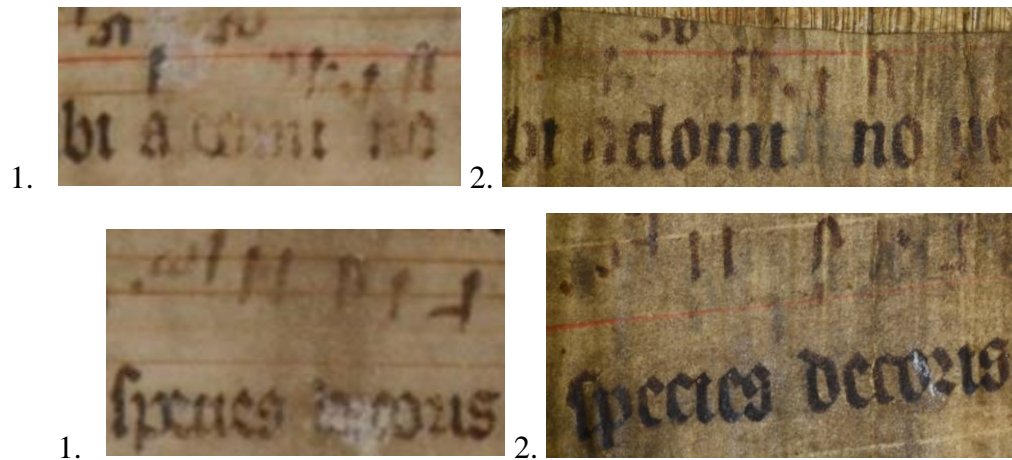 1. bi a domi no 2. bi adomi no
1. ſpecies decoris 2. ſpecies decoris